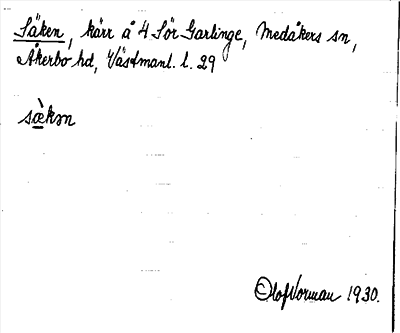 Säken, kärr å 4 Sör Garlinge, Medåkers sn,
Åkerbo hd, Västmanl. l. 29
sæ̀kən
Olof Norman 1930.